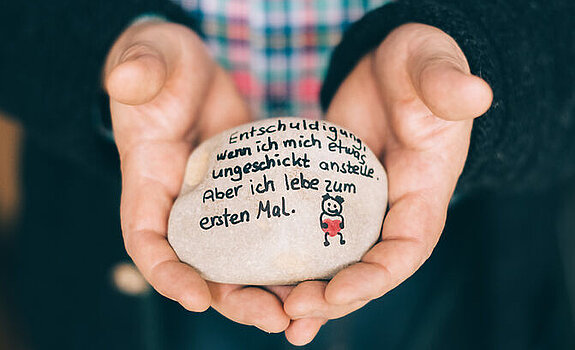 Entschuldigung,
wenn ich mich etwas
ungeschickt anstelle.
Aber ich lebe zum
ersten Mal.